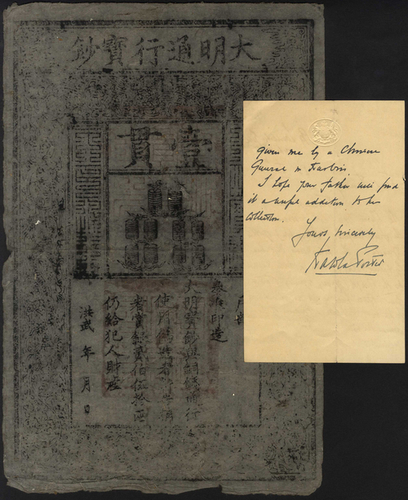 大明通行寶鈔
壹貫
奏准印造
大明寶鈔與銅錢通行
使用偽造者
者賞銀貳佰伍拾兩
仍給犯人財產
洪武 年 月 日
given me by a Chinese
General in Harbin.
I hope your father will find
it a useful addition to his
collection.
Yours sincerely
Harold Porter